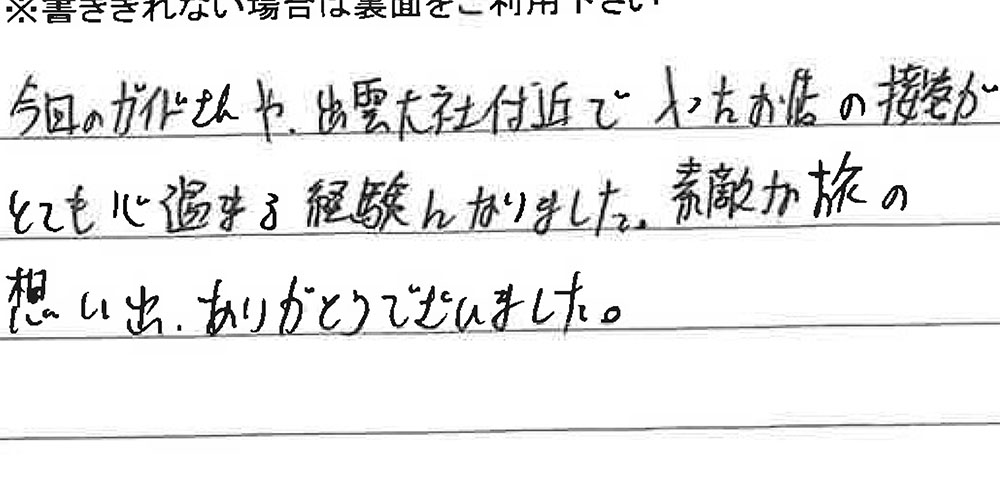 ※書ききれない場合は裏面をご利用下さい
今回のガイドさんや、出雲大社付近で入ったお店の接客が
とても心温まる経験になりました。素敵な旅の
想い出、ありがとうございました。